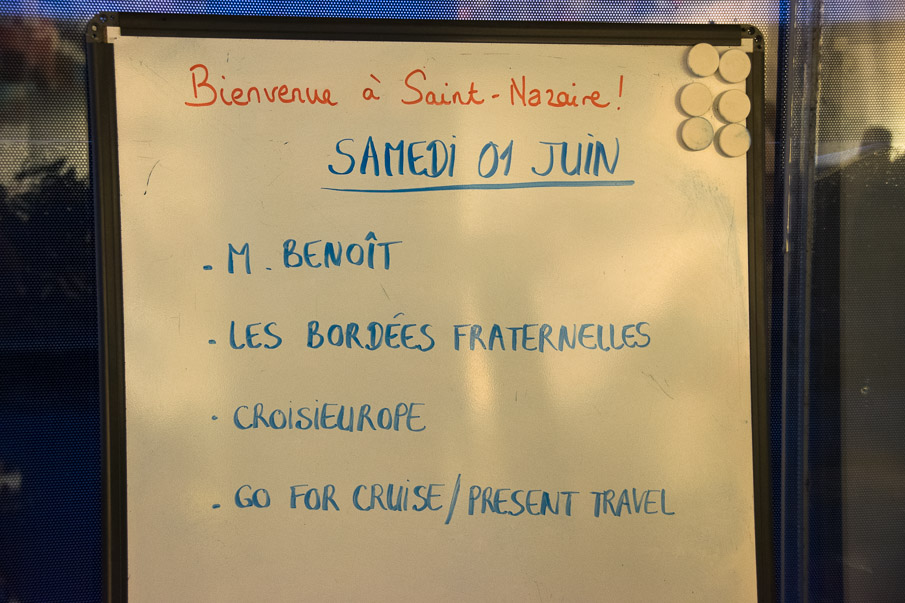 Bienvenue à Saint-Nazaire!
SAMEDI 01 JUIN
. M. BENOÎT
. LES BORDÉES FRATERNELLES
. CROISIEUROPE
. GO FOR CRUISE/PRESENT TRAVEL